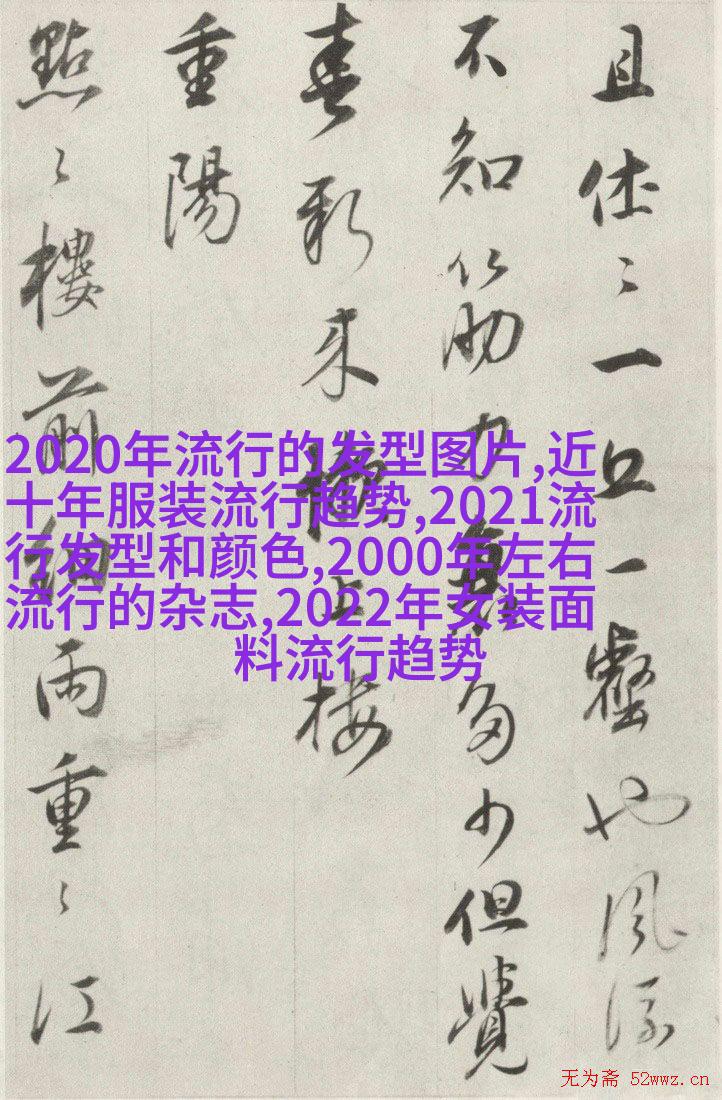 且休〻一丘一壑也風流
不知筋力衰多少但覺
春新来懶上楼
重陽
點〻樓前細雨重〻江
2020年流行的发型图片,近
十年服装流行趋势,2021流
行发型和颜色,2000年左右
流行的杂志,2022年女装面
料流行趋势
无为斋 52wwz.cn